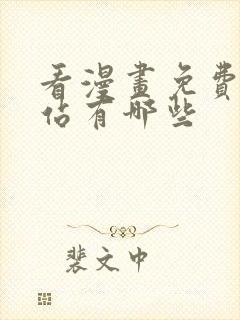 看漫畫免費
佔有哪些
裴文中